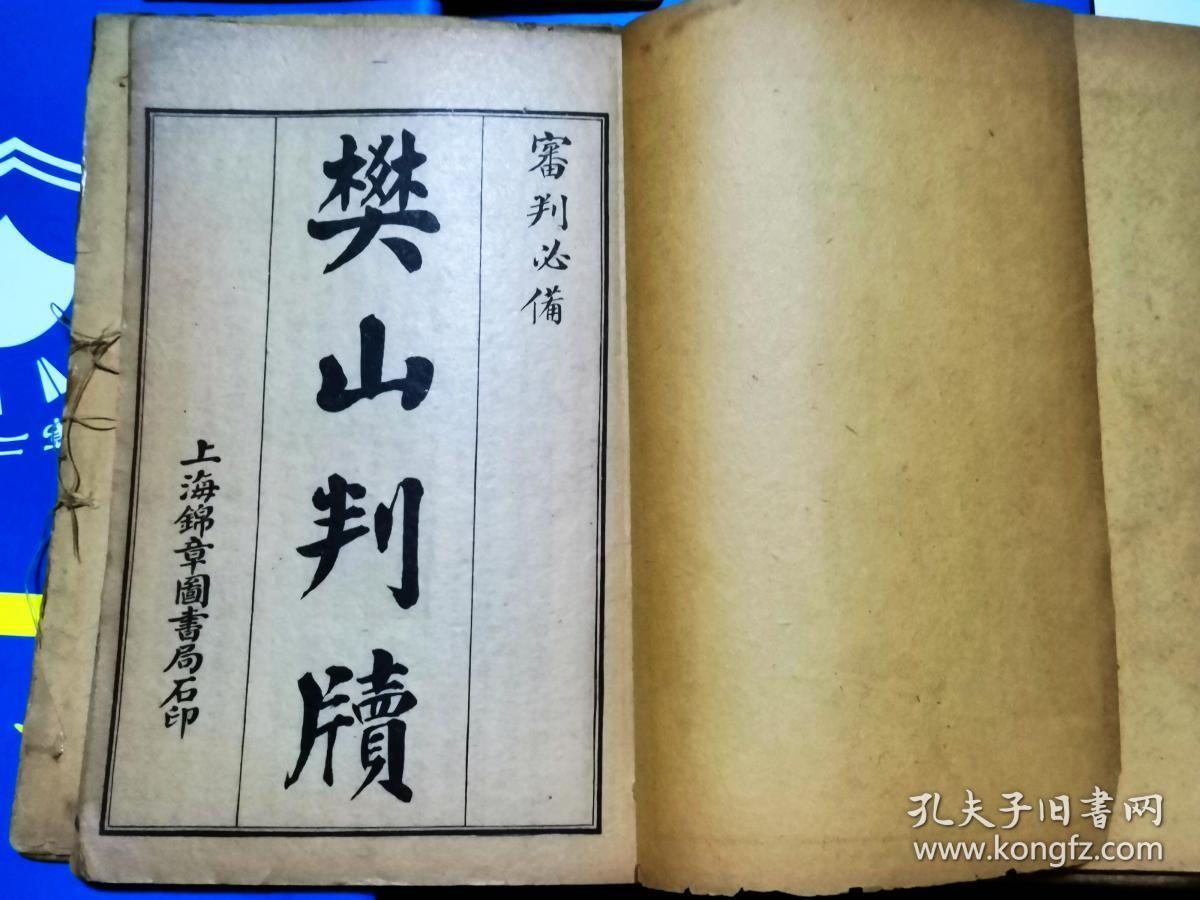 審判必備
樊山判牘
上海錦章圖書局石印
孔夫子旧书网
www.kongfz.com